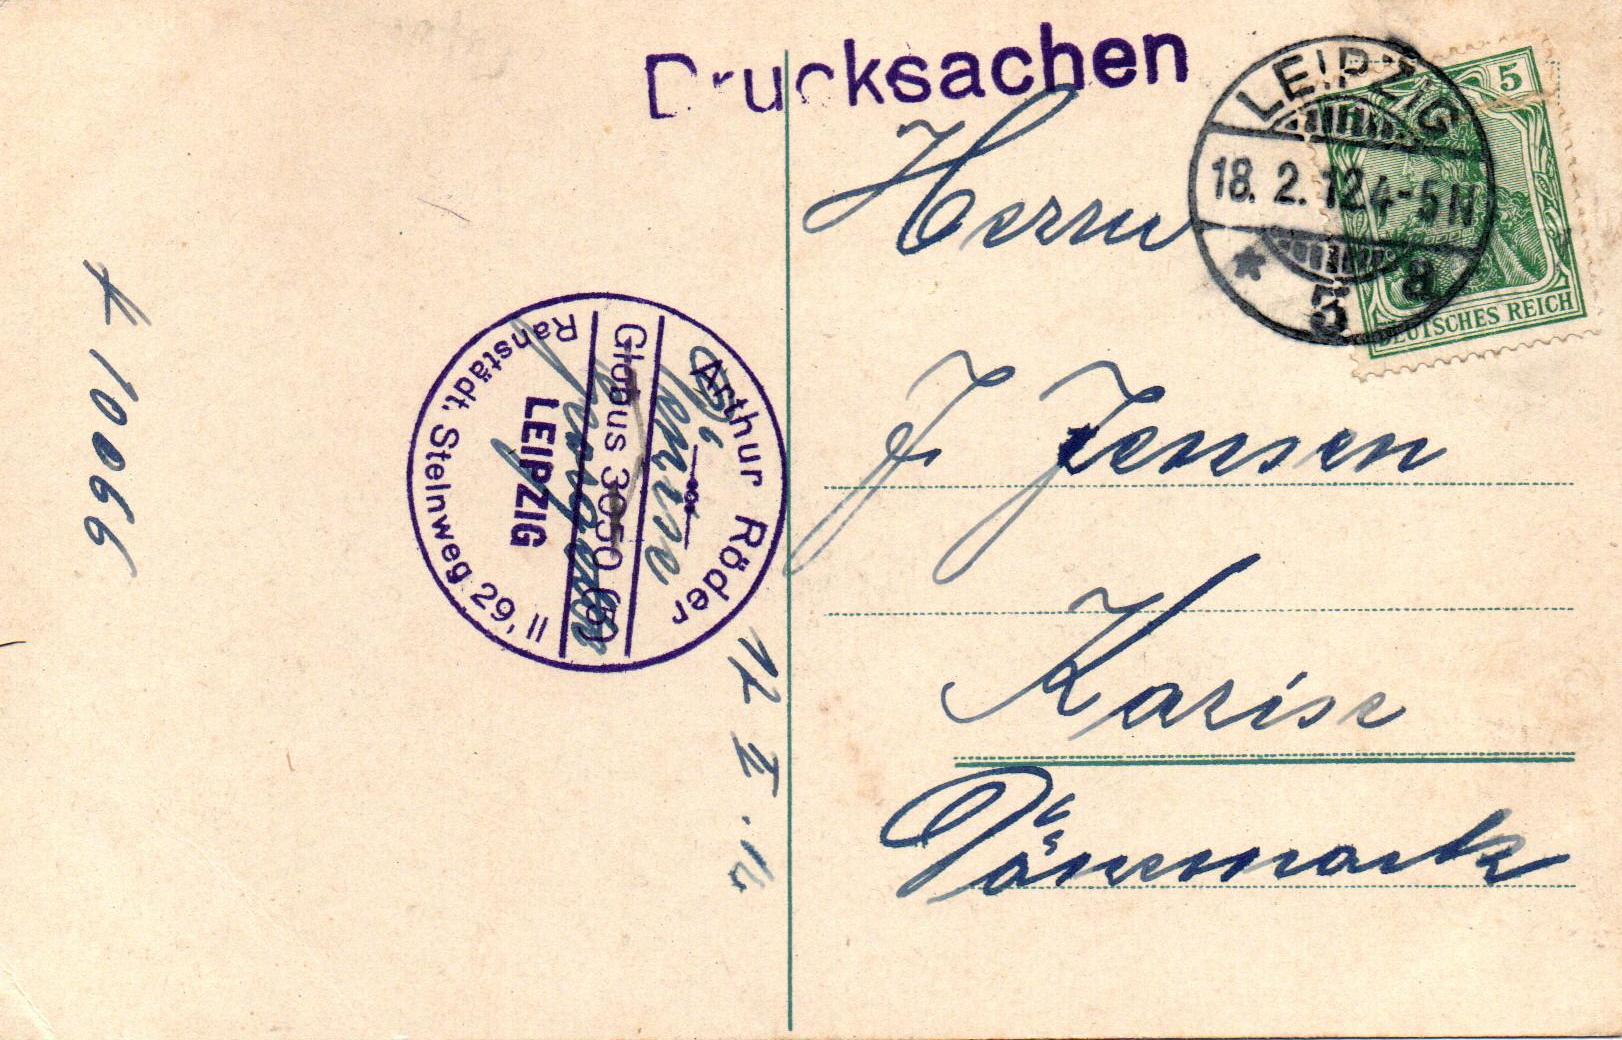 Drucksachen
LEIPZIG
18. 2. 12 4-5 N
* 5 a
5
DEUTSCHES REICH
Herrn
J Jensen
Karise
Dänemark
Arthur Röder
Globus 3050 (65)
LEIPZIG
Ranstädt. Steinweg 29, II
10066